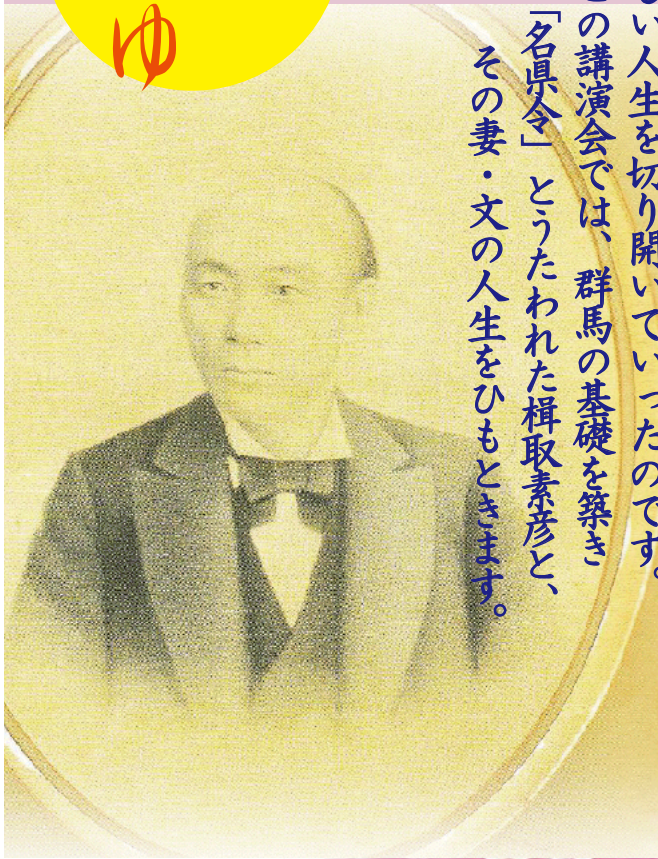 い人生を切り開いていったのです。
の講演会では、群馬の基礎を築き
「名県令」とうたわれた楫取素彦と、
その妻・文の人生をひもときます。
ゆ